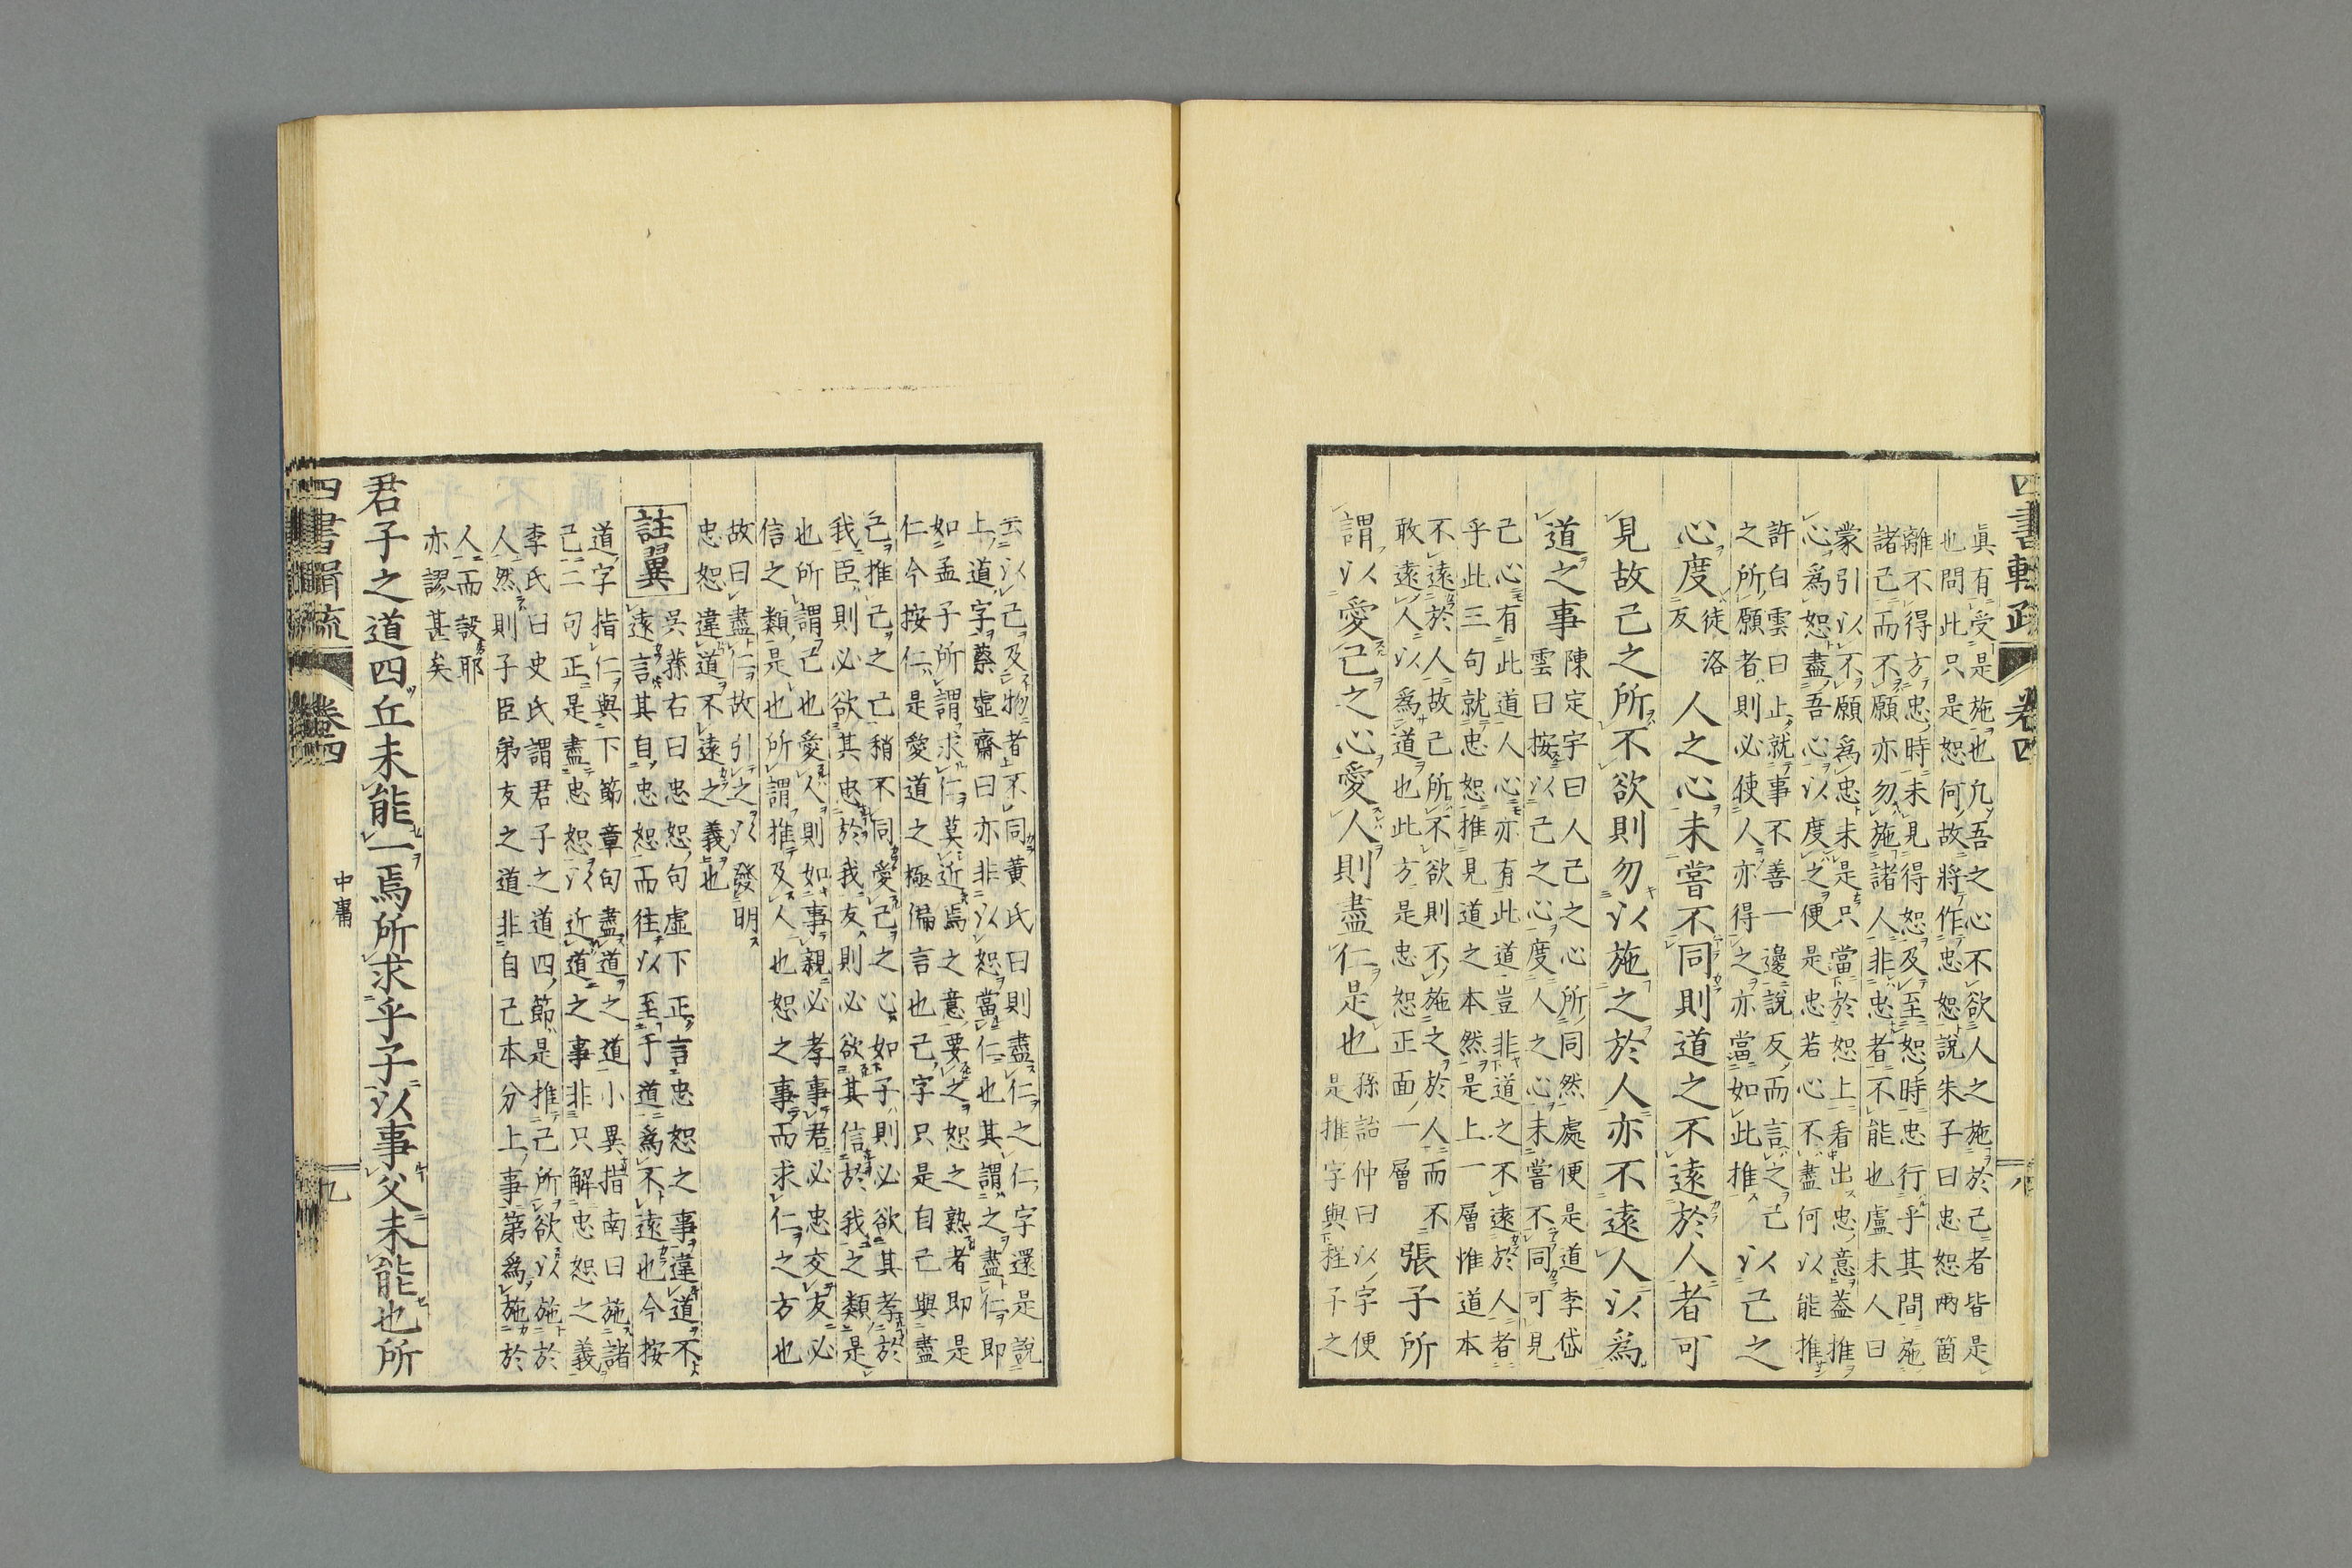 四書輯疏
卷四
八
眞有受是施也凢吾之心不欲人之施於己者皆是
也問此只是恕何故將作忠恕說朱子曰忠恕兩箇
離不得方忠時未見得恕及至恕時忠行乎其間施
諸己而不願亦勿施諸人非忠者不能也盧未人曰
蒙引以不願爲忠未是只當於恕上看出忠意蓋推
心爲恕盡吾心以度之便是忠若心不盡何以能推
許白雲曰止就事不善一邊說反而言之己
之所願者則必使人亦得之亦當如此推
以己之
心度
徒洛
反
人之心未嘗不同則道之不遠於人者可
見故己之所不欲則勿以施之於人亦不遠人以爲
道之事
陳定宇曰人己之心所同然處便是道李岱
雲曰按以己之心度人之心未嘗不同可見
己心有此道人心亦有此道豈非道之不遠於人者
乎此三句就忠恕推見道之本然是上一層惟道本
不遠於人故己所不欲則不施之於人而不
敢遠人以爲道也此方是忠恕正面一層
張子所
謂以愛己之心愛人則盡仁是也
孫詒仲曰以字便
是推字與程子之
云以己及物者不同黃氏曰則盡仁之仁字還是說
上道字蔡虛齋曰亦非以恕當仁也其謂之盡仁即
如孟子所謂求仁莫近焉之意要之恕之熟者即是
仁今按仁是愛道之極偏言也己字只是自己與盡
己推己之己稍不同愛己之心如子則必欲其孝於
我臣則必欲其忠於我友則必欲其信於我之類是
也所謂己也愛人則如事親必孝事君必忠交友必
信之類是也所謂推及人也恕之事而求仁之方也
故曰盡仁故引之以發明
忠恕違道不遠之義也
註翼
吳蓀右曰忠恕句虛下正言忠恕之事違道不
遠言其自忠恕而往以至于道爲不遠也今按
道字指仁與下節章句盡道之道小異指南曰施諸
己二句正是盡忠恕以近道之事非只解忠恕之義
李氏曰史氏謂君子之道四節是推己所欲以施於
人然則子臣弟友之道非自己本分上事第爲施於
人而設耶
亦謬甚矣
君子之道四丘未能一焉所求乎子以事父未能也所
四書輯疏
卷四
中庸
九